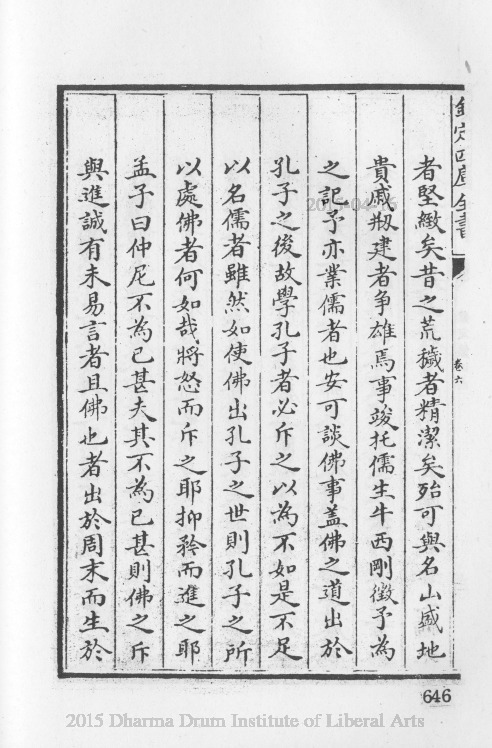 欽定四庫全書
卷六
者堅緻矣昔之荒穢者精潔矣殆可與名山盛地
貴戚剏建者争雄焉事竣托儒生牛西剛徵予為
之記予亦業儒者也安可談佛事盖佛之道出於
孔子之後故學孔子者必斥之以為不如是不足
以名儒者雖然如使佛出孔子之世則孔子之所
以處佛者何如哉將怒而斥之耶抑矜而進之耶
孟子曰仲尼不為已甚夫其不為已甚則佛之斥
與進誠有未易言者且佛也者出於周末而生於
646
2015 Dharma Drum Institute of Liberal Arts